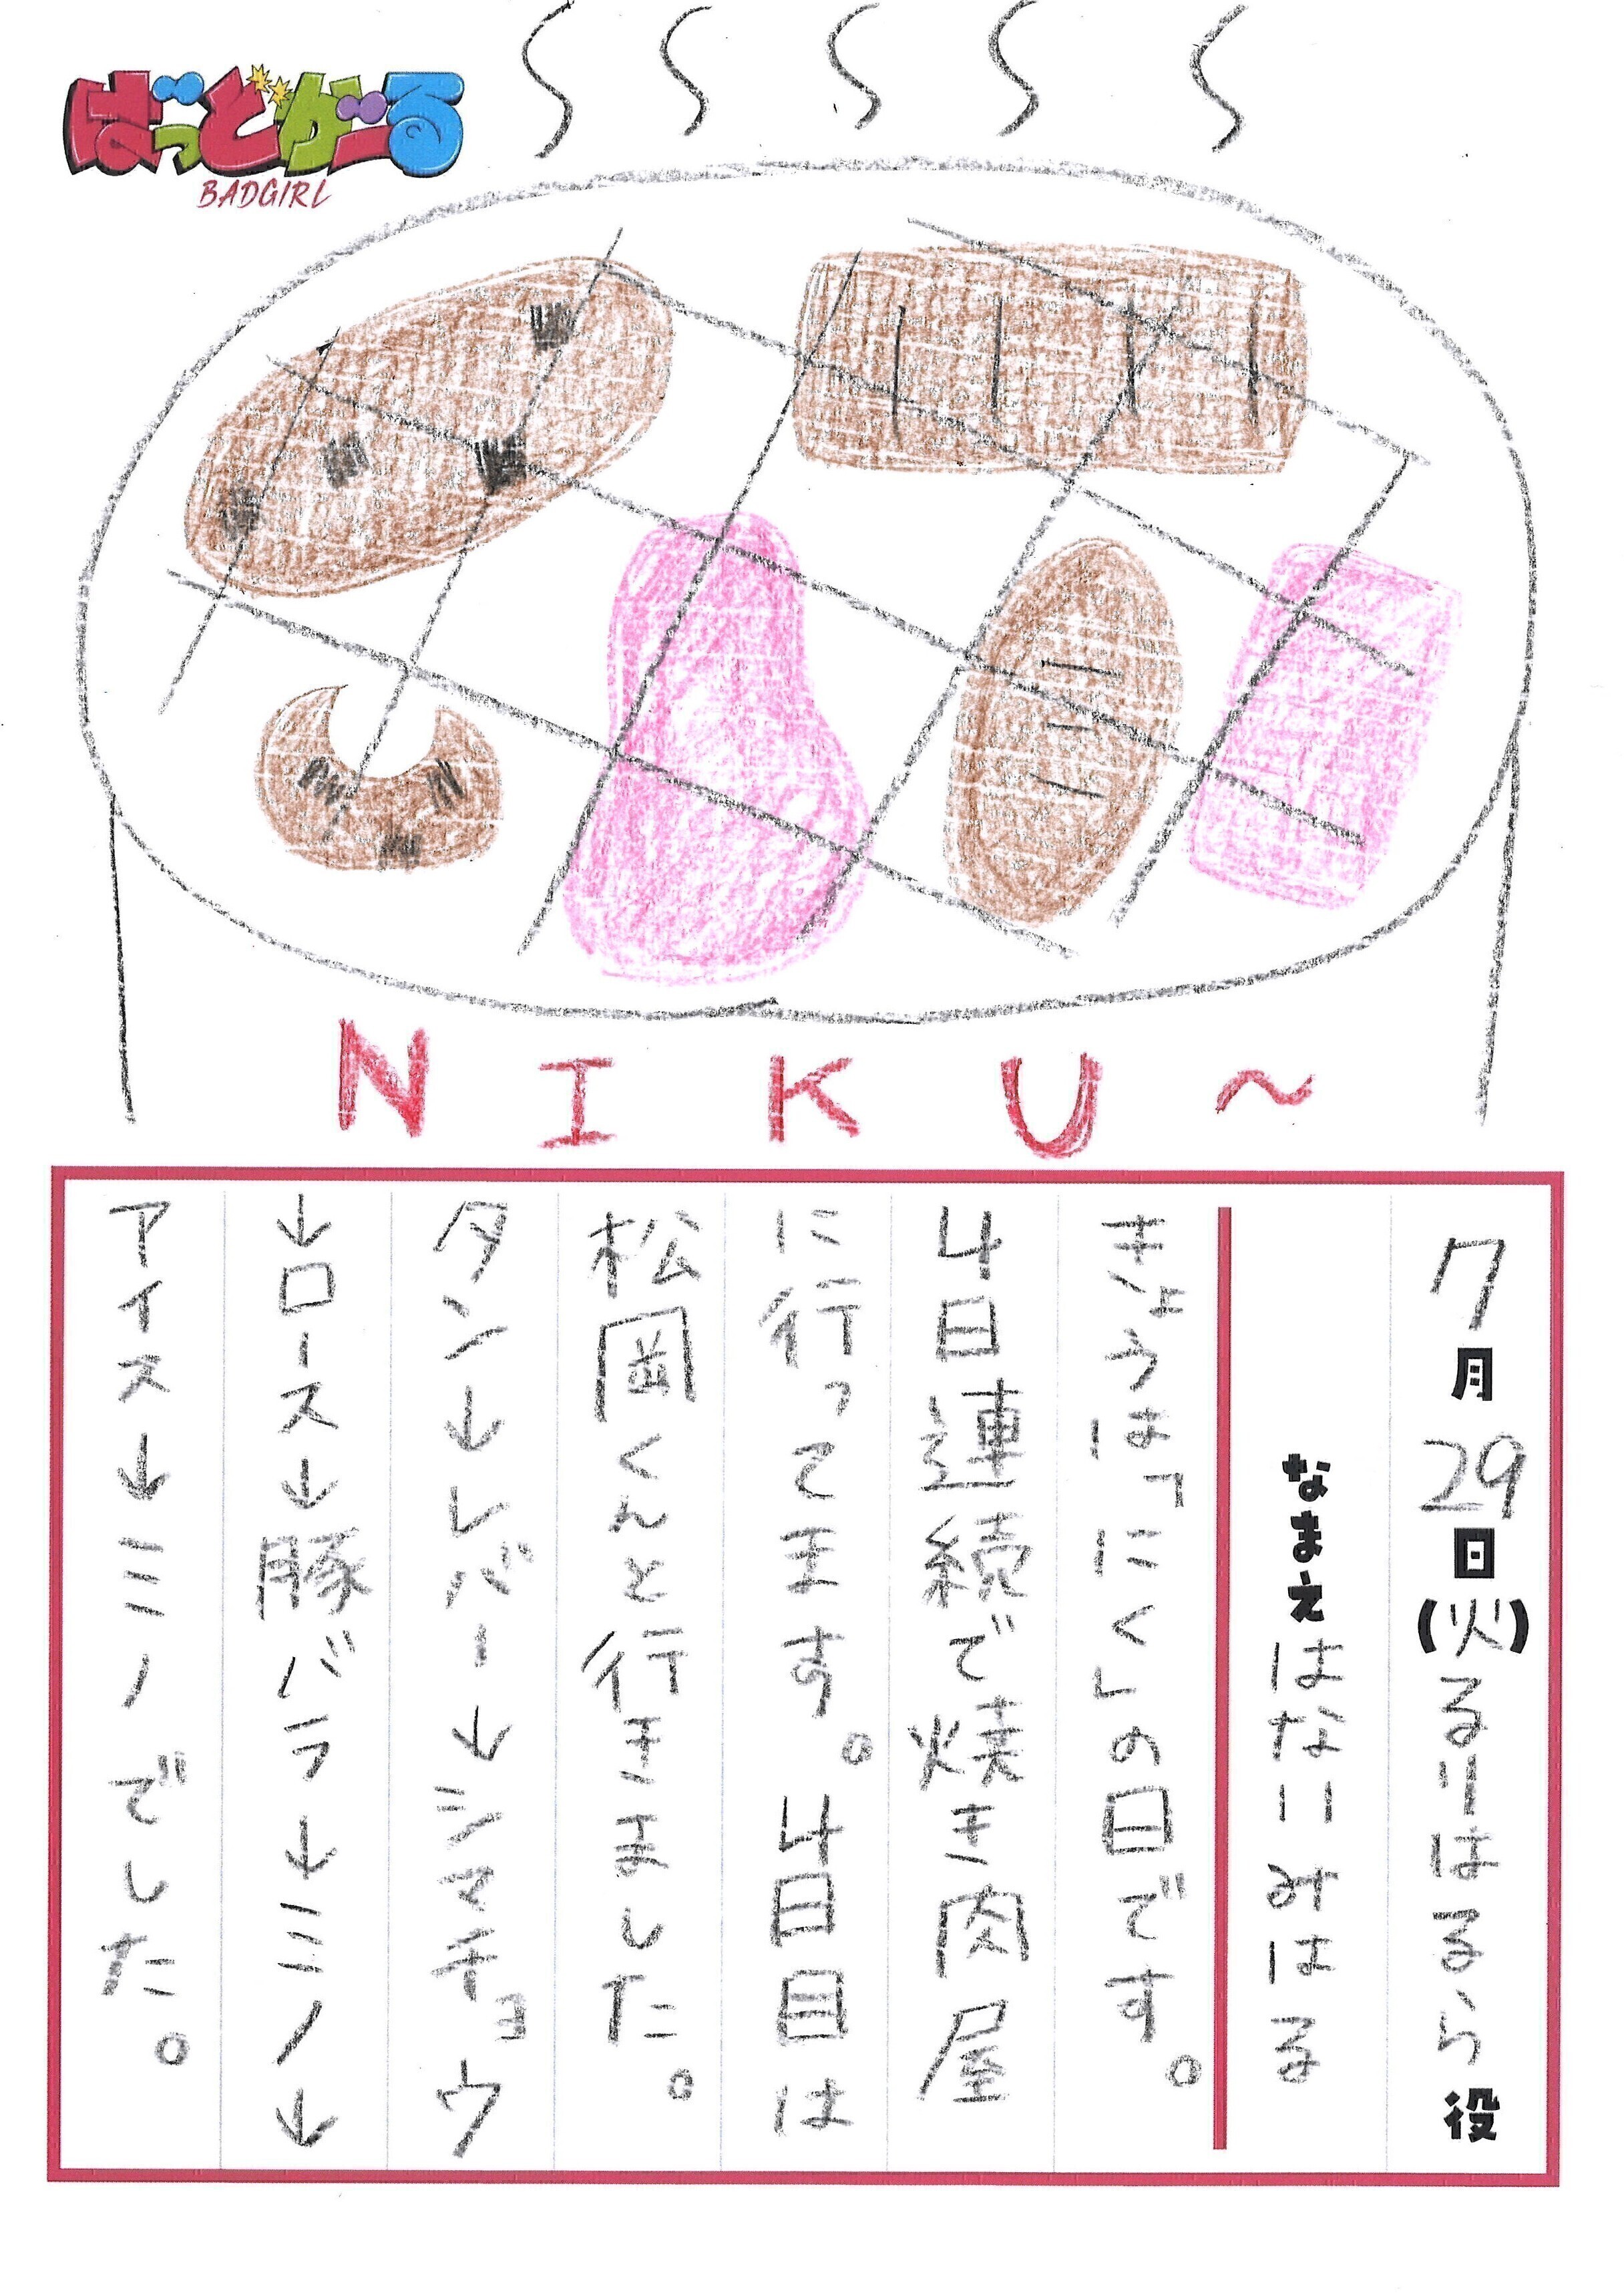 ばっどがーる
BADGIRL
NIKU~
7月29日(火)るりはるら役
なまえはないみはる
きょうは「にく」の日です。
4日連続で焼き肉屋
に行ってます。4日目は
松岡くんと行きました。
タン→レバー→シマチョウ
→ロース→豚バラ→ミノ→
アイス→ミノでした。